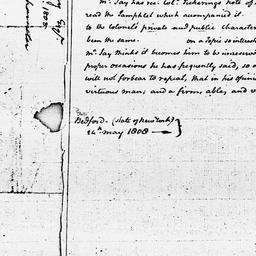 Mr. Jay has rec. Col. Pickerings note of
read the Pamphlet which accompanied it.
to the Colonel's private and public character
been the same. on a Topic so interest
Mr. Jay thinks it becomes him to be unreserv
proper occasions he has frequently said, so
will not forbear to repeat, that in his opinio
virtuous man; and a firm, able, and v
Bedford. (state of New York)
24th May 1808
1808